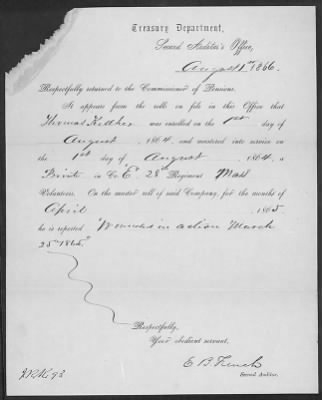 Treasury Department,
Second Auditor's Office,
August 1st, 1866.
Respectfully returned to the Commissioner of Pensions.
It appears from the rolls on file in this Office that
Thomas was enrolled on the 1st day of
August, 1864, and mustered into service on
the 1st day of August, 1864, a
Private in Co. "E" 28th Regiment Mass
Volunteers. On the muster roll of said Company, for the months of
April, 1865,
he is reported "Wounded in action March
25th 1865."
Respectfully,
Your obedient servant,
E B French
Second Auditor.